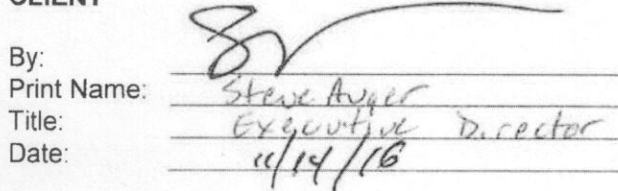 CLIENT
By:
Print Name: Steve Auger
Title: Executive Director
Date: 11/14/16